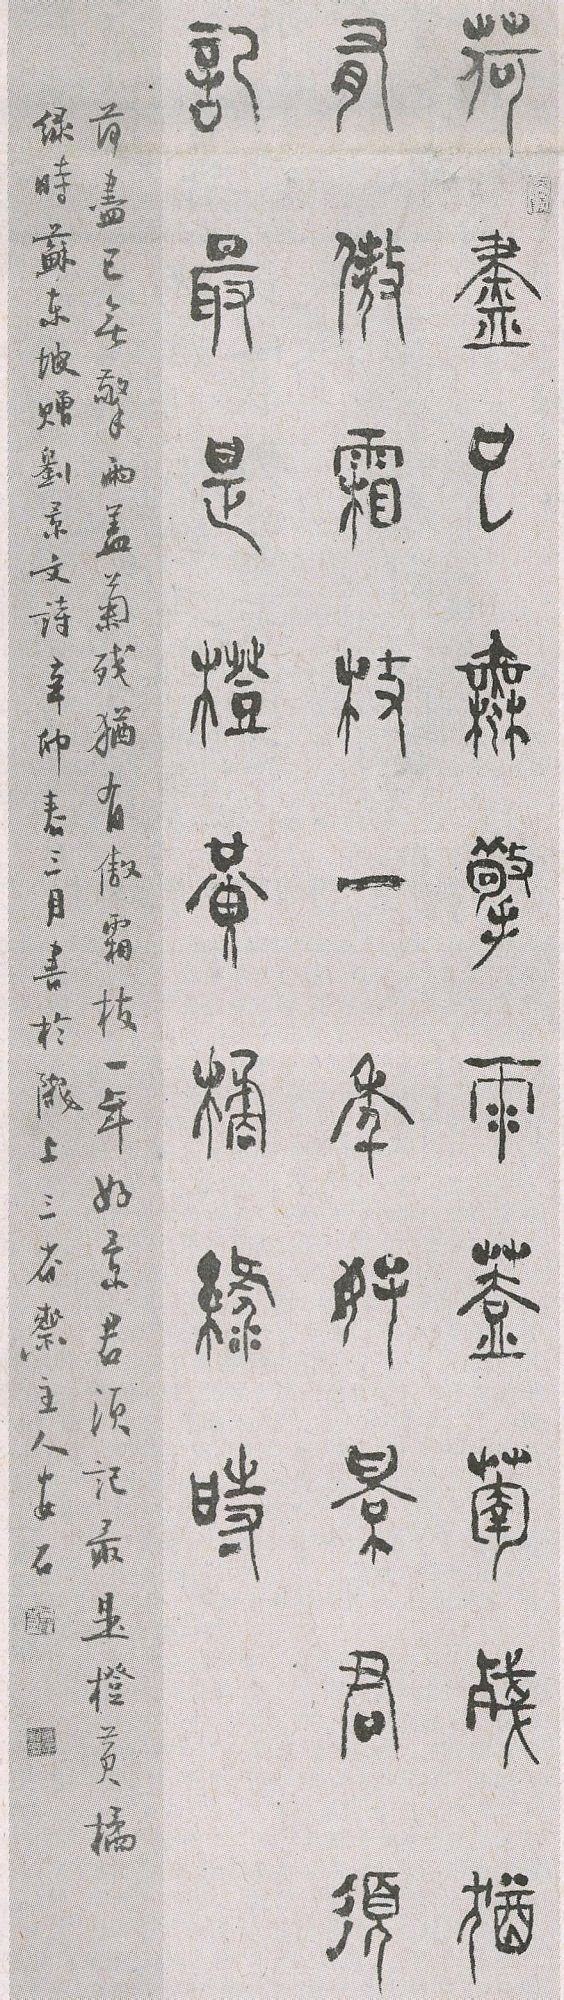 荷盡已無擎雨蓋菊殘猶
有傲霜枝一年好景君須
記最是橙黃橘綠時
荷盡已無擎雨蓋菊殘猶有傲霜枝一年好景君須記最是橙黄橘
綠時蘇東坡贈劉景文詩辛卯春三月書於隴上三省齋主人安石